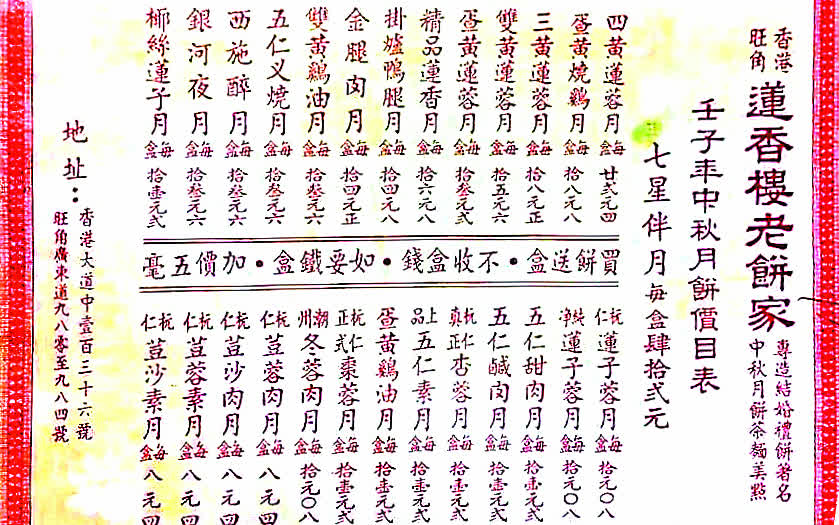 香港
旺角
蓮香樓老餅家
專造結婚禮餅著名
中秋月餅茶麵美點
壬子年中秋月餅價目表
七星伴月每盒肆拾弍元
四黃蓮蓉月每盒廿弍元四
蛋黃燒鷄月每盒拾八元八
三黃蓮蓉月每盒拾八元正
雙黃蓮蓉月每盒拾五元六
蛋黃蓮蓉月每盒拾叁元弍
精品蓮香月每盒拾六元八
掛爐鴨腿月每盒拾四元八
金腿肉月每盒拾四元正
雙黃鷄油月每盒拾叁元六
五仁叉燒月每盒拾叁元六
西施醉月每盒拾叁元六
銀河夜月每盒拾叁元六
椰絲蓮子月每盒拾壹元弍
買餅送盒·不收盒錢·如要鐵盒·加價五毫
杬仁蓮子蓉月每盒拾元〇八
純淨蓮子蓉月每盒拾元〇八
五仁甜肉月每盒拾壹元弍
五仁鹹肉月每盒拾壹元弍
杬仁真正杏蓉月每盒拾壹元弍
上品五仁素月每盒拾壹元弍
蛋黃鷄油月每盒拾壹元弍
杬仁正式棗蓉月每盒拾壹元弍
潮州冬蓉肉月每盒拾元〇八
杬仁荳蓉肉月每盒八元四
杬仁荳沙肉月每盒八元四
杬仁荳蓉素月每盒八元四
杬仁荳沙素月每盒八元四
地址：
香港大道中壹百三十六號
旺角廣東道九八零至九八四號